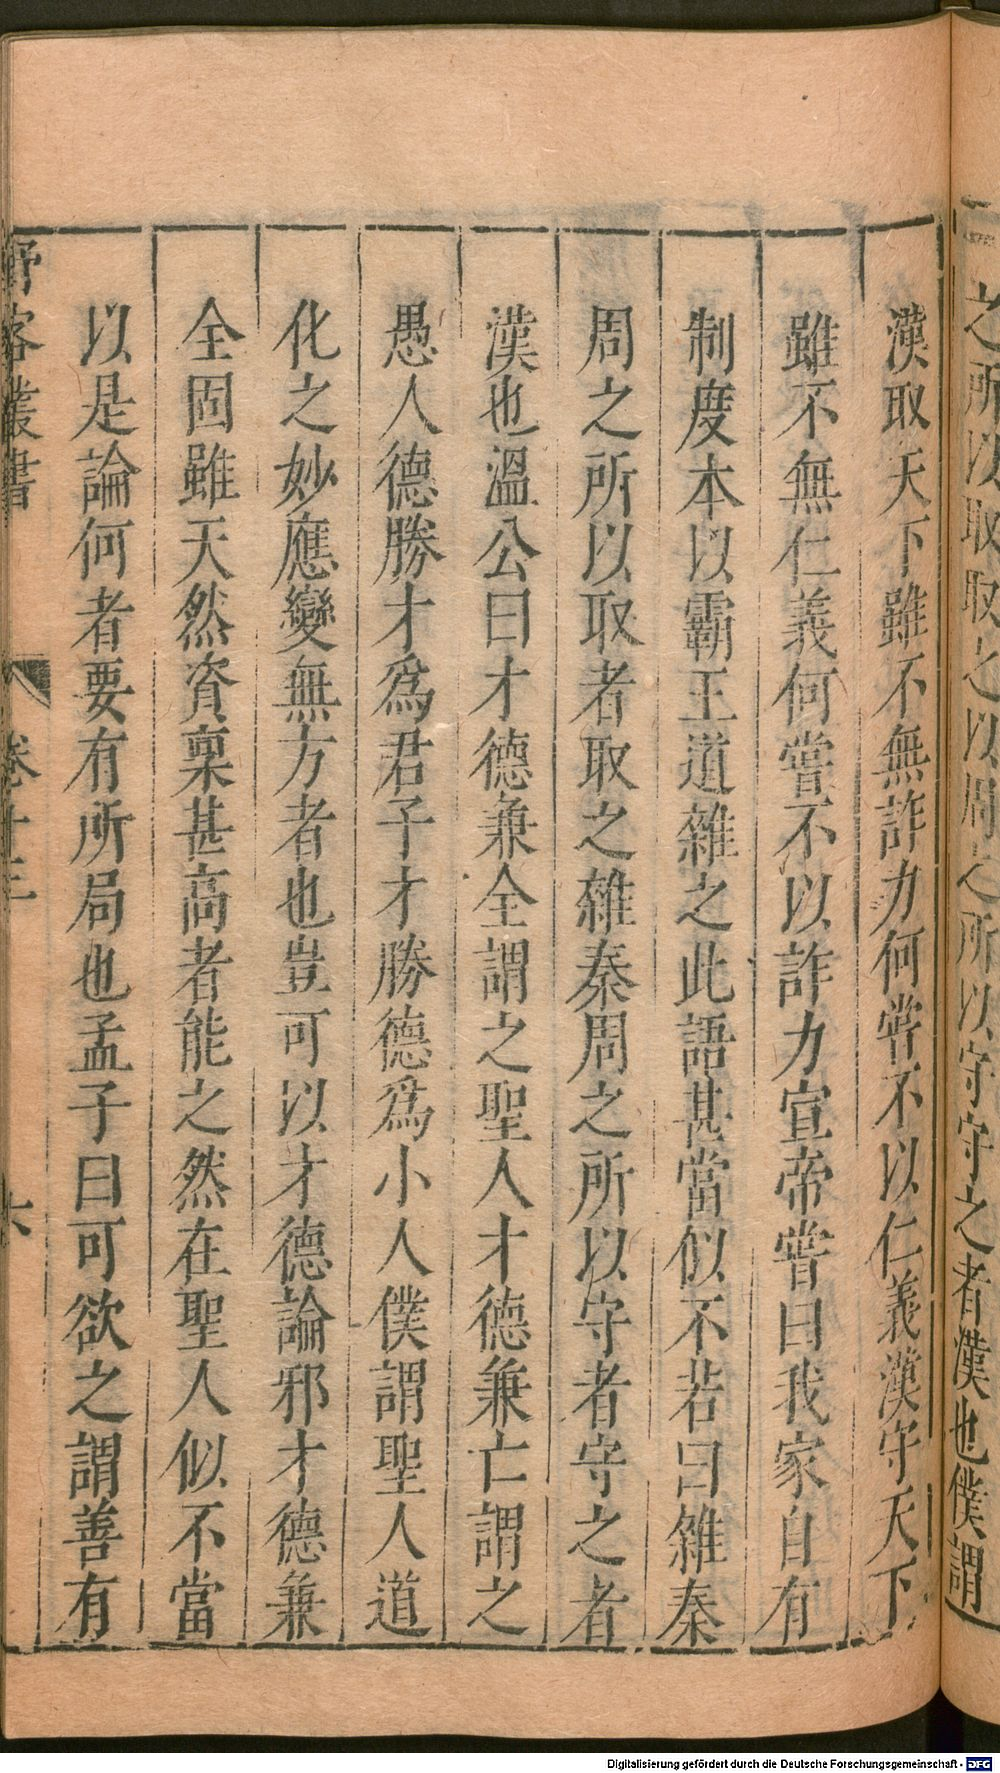 之所以取取之以周之所以守守之者漢也僕謂
漢取天下雖不無詐力何嘗不以仁義漢守天下
雖不無仁義何嘗不以詐力宣帝嘗曰我家自有
制度本以霸王道雜之此語甚當似不若曰雜秦
周之所以取者取之雜秦周之所以守者守之者
漢也溫公曰才德兼全謂之聖人才德兼亡謂之
愚人德勝才爲君子才勝德爲小人僕謂聖人道
化之妙應變無方者也豈可以才德論邪才德兼
全固雖天然資稟甚高者能之然在聖人似不當
以是論何者要有所局也孟子曰可欲之謂善有
野客叢書 卷十三 六
Digitalisierung gefördert durch die Deutsche Forschungsgemeinschaft - DFG